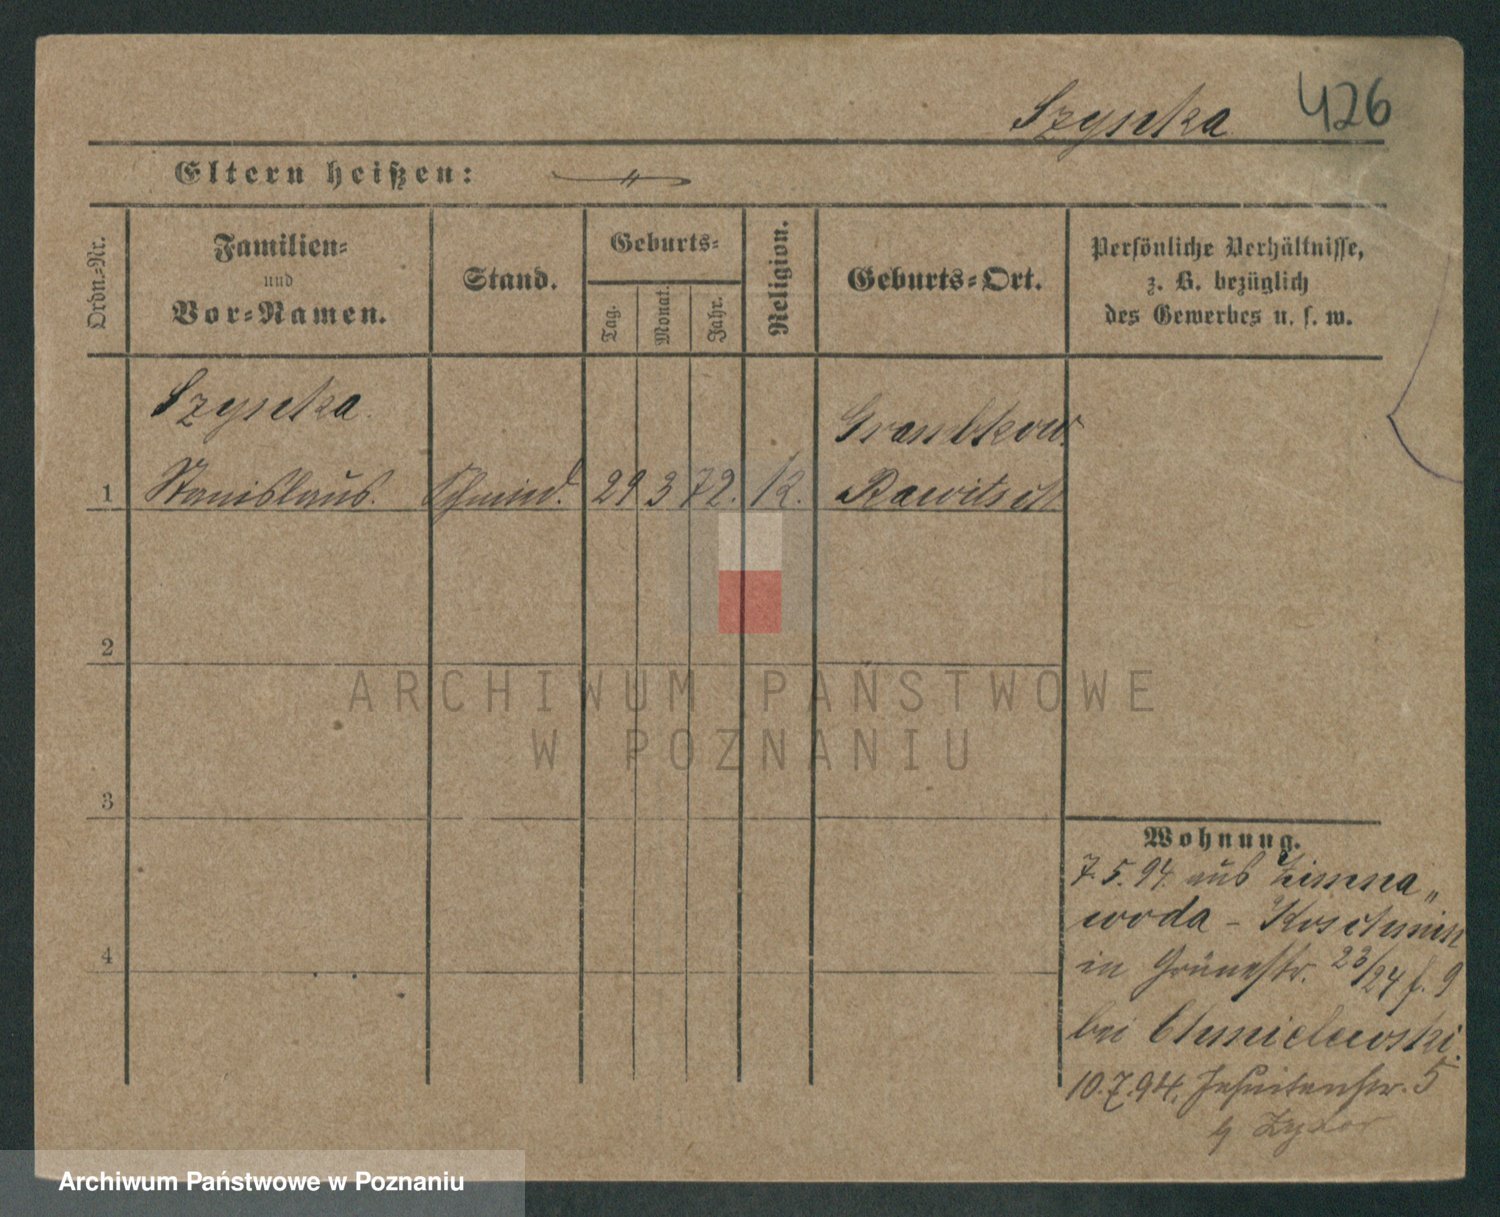 Szyska 426
Eltern heißen: "
Ordn.-Nr.
Familien-
und
Vor-Namen.
Stand.
Geburts-
Tag.
Monat.
Jahr.
Religion.
Geburts-Ort.
Persönliche Verhältnisse,
z. B. bezüglich
des Gewerbes u. s. w.
Szyska
Grambkow
1 Stanislaus. Schmied. 29 3 72. K. Rawitsch
2
ARCHIWUM PAŃSTWOWE
W POZNANIU
3
Wohnung.
7.5.94. aus Zimna„
woda - Koschmin
in Grünestr. 23/24 f. 9
4
bei Chmielewski.
10.7.94. Jesuitenstr. 5
Archiwum Państwowe w Poznaniu